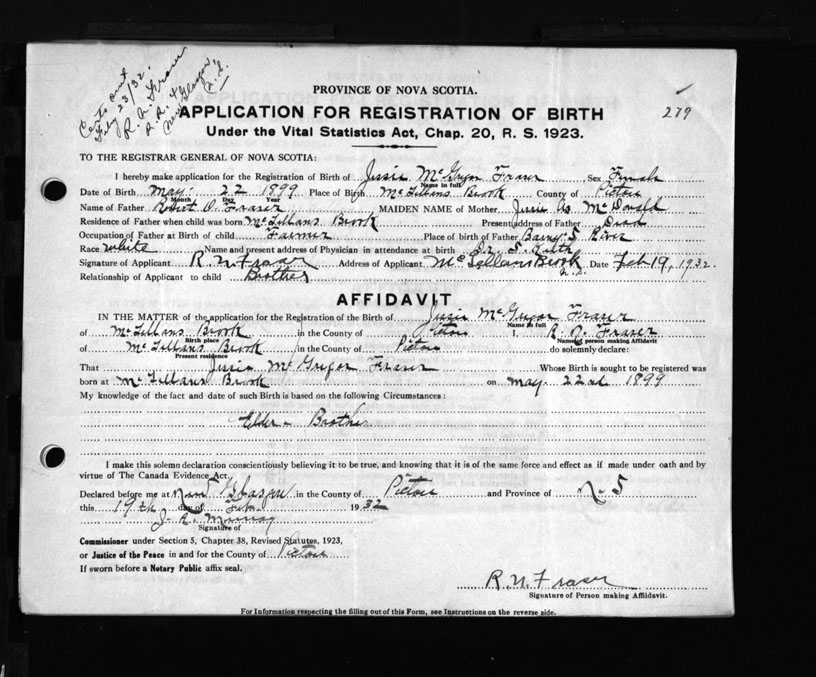 Certs out
Feby 23/32.
R. N. Fraser
R. R. 4
New Glasgow,
N. S.
PROVINCE OF NOVA SCOTIA.
APPLICATION FOR REGISTRATION OF BIRTH
279
Under the Vital Statistics Act, Chap. 20, R. S. 1923.
TO THE REGISTRAR GENERAL OF NOVA SCOTIA:
I hereby make application for the Registration of Birth of Jessie McGregor Fraser Sex Female
Name in full
Date of Birth May 22 1899 Place of Birth McLellans Brook County of Pictou
Month Day Year
Name of Father Robert O. Fraser MAIDEN NAME of Mother Jessie McDonald
Residence of Father when child was born McLellans Brook Present address of Father Dead
Occupation of Father at Birth of child Farmer Place of birth of Father Barneys River
Race White Name and present address of Physician in attendance at birth Dr.
Signature of Applicant R. N. Fraser Address of Applicant McLellans Brook N.S. Date Feb 19, 1932
Relationship of Applicant to child Brother
AFFIDAVIT
IN THE MATTER of the application for the Registration of the Birth of Jessie McGregor Fraser
Name in full
of McLellans Brook in the County of Pictou I, R. N. Fraser
Birth place Name of person making Affidavit
of McLellans Brook in the County of Pictou do solemnly declare:
Present residence
That Jessie McGregor Fraser Whose Birth is sought to be registered was
born at McLellans Brook on May 22nd 1899
My knowledge of the fact and date of such Birth is based on the following Circumstances:
Elder - Brother
I make this solemn declaration conscientiously believing it to be true, and knowing that it is of the same force and effect as if made under oath and by
virtue of The Canada Evidence Act.
Declared before me at New Glasgow in the County of Pictou and Province of N. S
this 19th day of Feb 1932
J. R. Murray
Signature of
Commissioner under Section 5, Chapter 38, Revised Statutes, 1923,
or Justice of the Peace in and for the County of Pictou
If sworn before a Notary Public affix seal.
R. N. Fraser
Signature of Person making Affidavit.
For Information respecting the filling out of this Form, see Instructions on the reverse side.